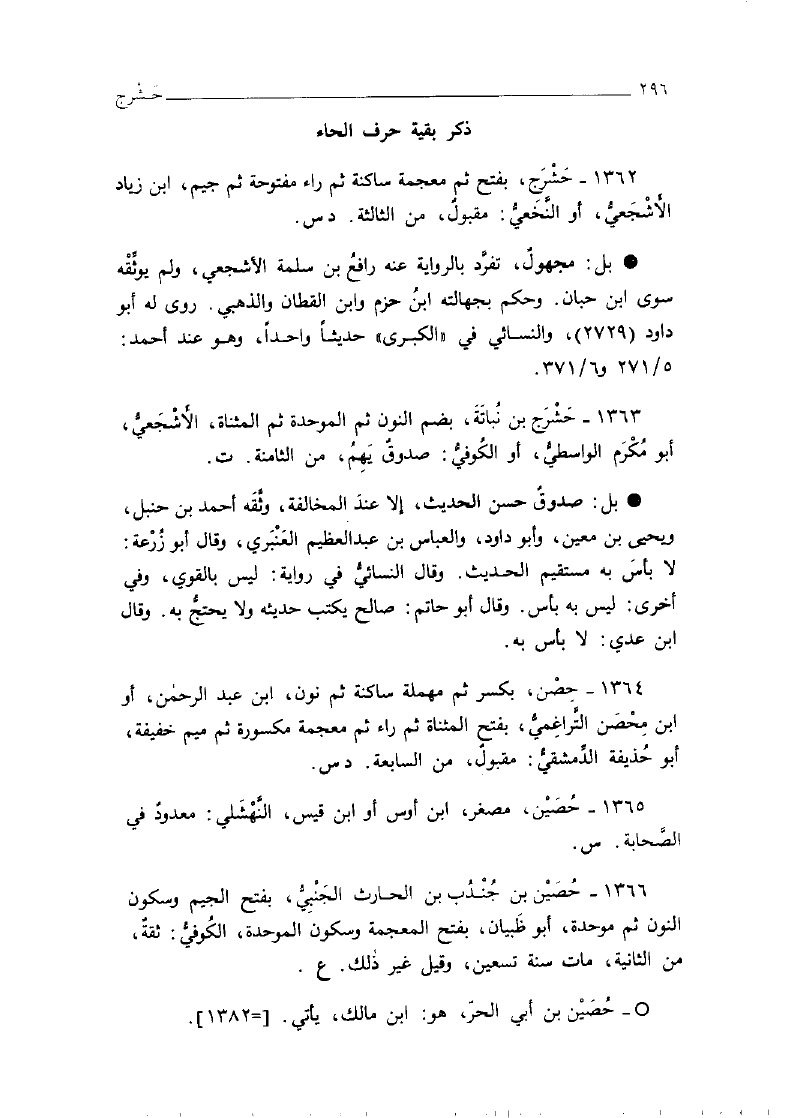 ٢٩٦ حَشْرج
ذكر بقية حرف الحاء
١٣٦٢ ـ حَشْرَج، بفتح ثم معجمة ساكنة ثم راء مفتوحة ثم جيم، ابن زياد
الأَشْجَعيُّ، أو النَّخَعيُّ: مقبولٌ، من الثالثة. د س.
● بل: مجهولٌ، تفرَّد بالرواية عنه رافعُ بن سلمة الأشجعي، ولم يوثِّقْه
سوى ابن حبان. وحكم بجهالته ابنُ حزم وابن القطان والذهبي. روى له أبو
داود (٢٧٢٩)، والنسائي في «الكبرى» حديثاً واحداً، وهو عند أحمد:
٢٧١/٥ و٣٧١/٦.
١٣٦٣ ـ حَشْرَج بن نُباتَةَ، بضم النون ثم الموحدة ثم المثناة، الأَشْجَعيُّ،
أبو مُكْرَم الواسطيُّ، أو الكُوفيُّ: صدوقٌ يَهِمُ، من الثامنة. ت.
● بل: صدوقٌ حسن الحديث، إلا عندَ المخالفة، وثَّقه أحمد بن حنبل،
ويحيى بن معين، وأبو داود، والعباس بن عبدالعظيم العَنْبَري، وقال أبو زُرْعة:
لا بأسَ به مستقيم الحديث. وقال النسائيُّ في رواية: ليس بالقوي، وفي
أخرى: ليس به بأس. وقال أبو حاتم: صالح يكتب حديثه ولا يحتجُّ به. وقال
ابن عدي: لا بأس به.
١٣٦٤ ـ حِصْن، بكسر ثم مهملة ساكنة ثم نون، ابن عبد الرحمٰن، أو
ابن مِحْصَن التَّراغِميُّ، بفتح المثناة ثم راء ثم معجمة مكسورة ثم ميم خفيفة،
أبو حُذيفة الدِّمشقيُّ: مقبولٌ، من السابعة. د س.
١٣٦٥ ـ حُصَيْن، مصغر، ابن أوس أو ابن قيس، النَّهْشَلي: معدودٌ في
الصَّحابة. س.
١٣٦٦ ـ حُصَيْن بن جُنْدُب بن الحارث الجَنْبيُّ، بفتح الجيم وسكون
النون ثم موحدة، أبو ظَبيان، بفتح المعجمة وسكون الموحدة، الكُوفيُّ: ثقةٌ،
من الثانية، مات سنة تسعين، وقيل غير ذٰلك. ع .
○ ـ حُصَيْن بن أبي الحرّ، هو: ابن مالك، يأتي. [=١٣٨٢].